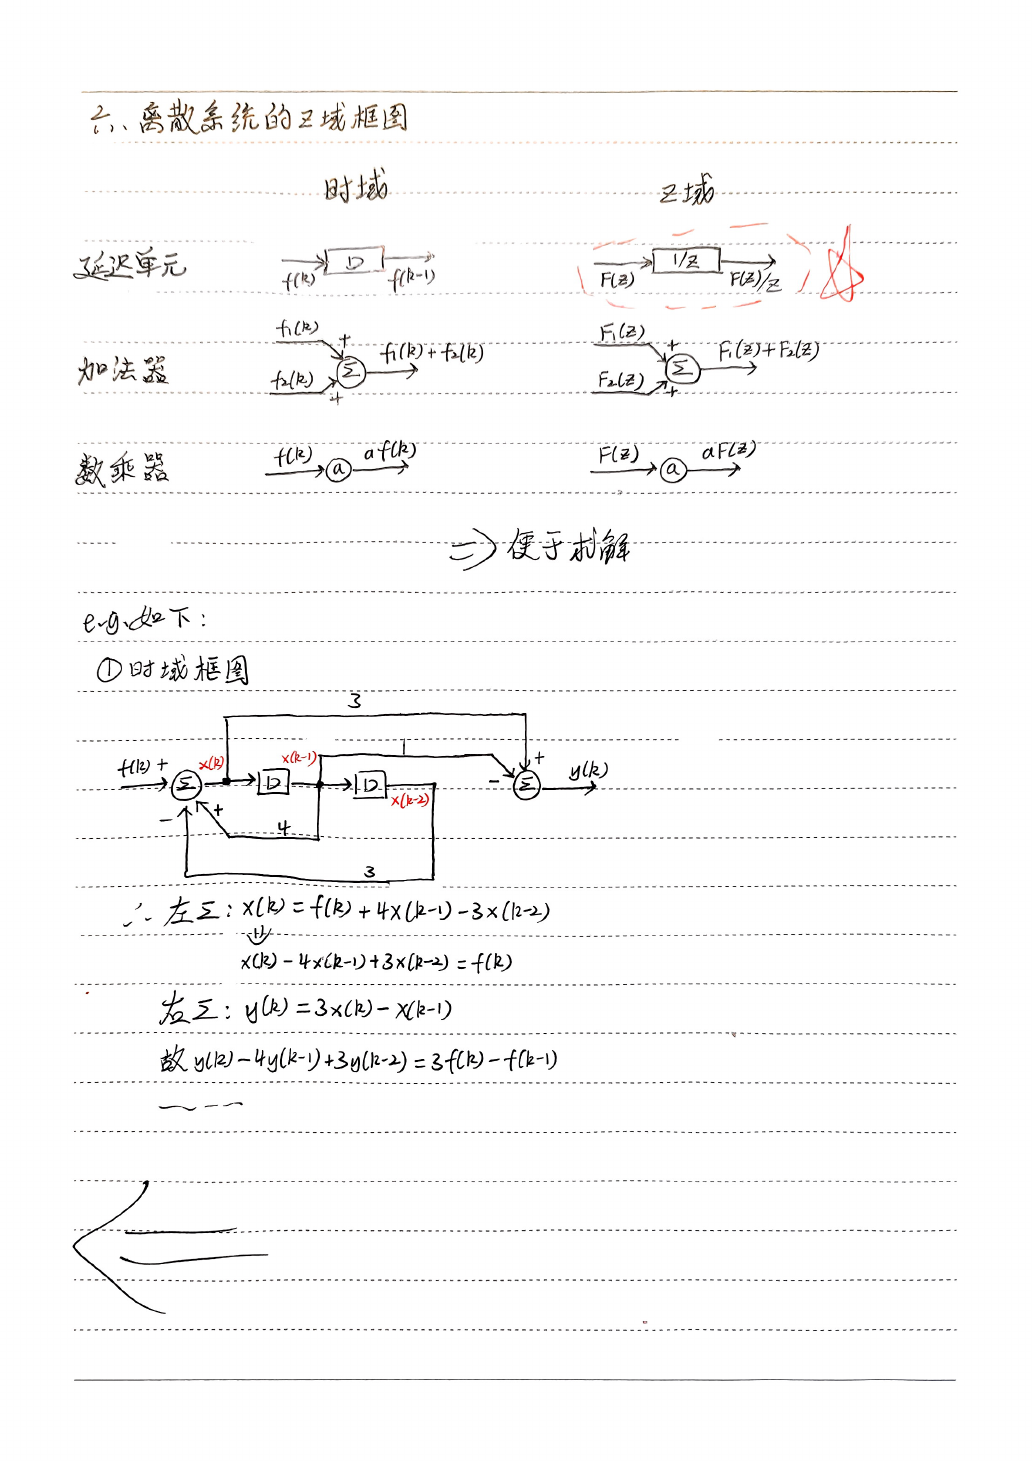 六、离散系统的Z域框图
时域 Z域
延迟单元 f(k) D f(k-1) F(Z) 1/Z F(Z)/Z
f₁(k) + F₁(Z) +
加法器 Σ f₁(k)+f₂(k) Σ F₁(Z)+F₂(Z)
f₂(k) + F₂(Z) +
数乘器 f(k) a af(k) F(Z) a aF(Z)
=> 便于求解
e.g.如下:
①时域框图
3
f(k) + Σ x(k) D x(k-1) D x(k-2) 1 - + Σ y(k)
- + 4
3
∴ 左Σ: x(k)=f(k)+4x(k-1)-3x(k-2)
x(k)-4x(k-1)+3x(k-2)=f(k)
右Σ: y(k)=3x(k)-x(k-1)
故 y(k)-4y(k-1)+3y(k-2)=3f(k)-f(k-1)